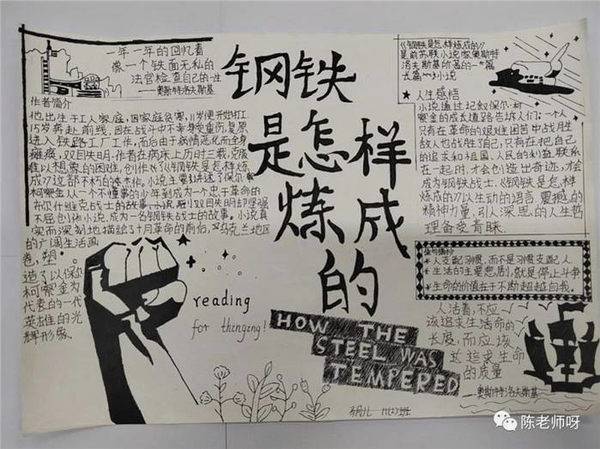 一年一年的回忆着
像一个铁面无私的
法官检查自己的一生
——奥斯特洛夫斯基
作者简介
他出生于工人家庭，因家庭贫寒，11岁便开始打工
15岁奔赴前线，因在战斗中不幸身受重伤，复原
进入铁路工厂工作，而后由于病情恶化而全身
瘫痪，双目失明。作者在病床上历时三载，克服
难以想象的困难，创作成了《钢铁是怎样炼
成》这部不朽的艺术杰作。
屈创作小说，成为一名钢铁战士的故事。小说真
实而深刻地描绘了十月革命的前后，乌克兰地区
的广阔生活画
卷，塑
造了以保尔
柯察金为
代表的一代
英雄的光
辉形象。
钢铁
是怎样
炼成
的
HOW THE
STEEL WAS
TEMPERED
reading
for thinging!
《钢铁是怎样炼成的》
是前苏联小说家奥斯特
洛夫斯基所著的一篇
长篇小说
★人生感悟
小说通过记叙保尔·柯
察金的成长道路告诉人们：一个人
只有在革命的艰难困苦中战胜敌
人也战胜自己，只有在把自己
的追求和祖国、人民的利益联系
在一起时，才会创造出奇迹，才会
成为钢铁战士。《钢铁是怎样
炼成的》以生动的语言，震撼的
精神力量，引人深思的人生哲
理备受青睐。
佳句摘抄
★人支配习惯，而不是习惯支配人
★生活的主要悲剧，就是停止斗争
★生命的价值在于不断超越自我。
人活着，不应
该追求生活命的
长度，而应该
过追求生命
的质量
——奥斯特洛夫斯基
陈老师呀